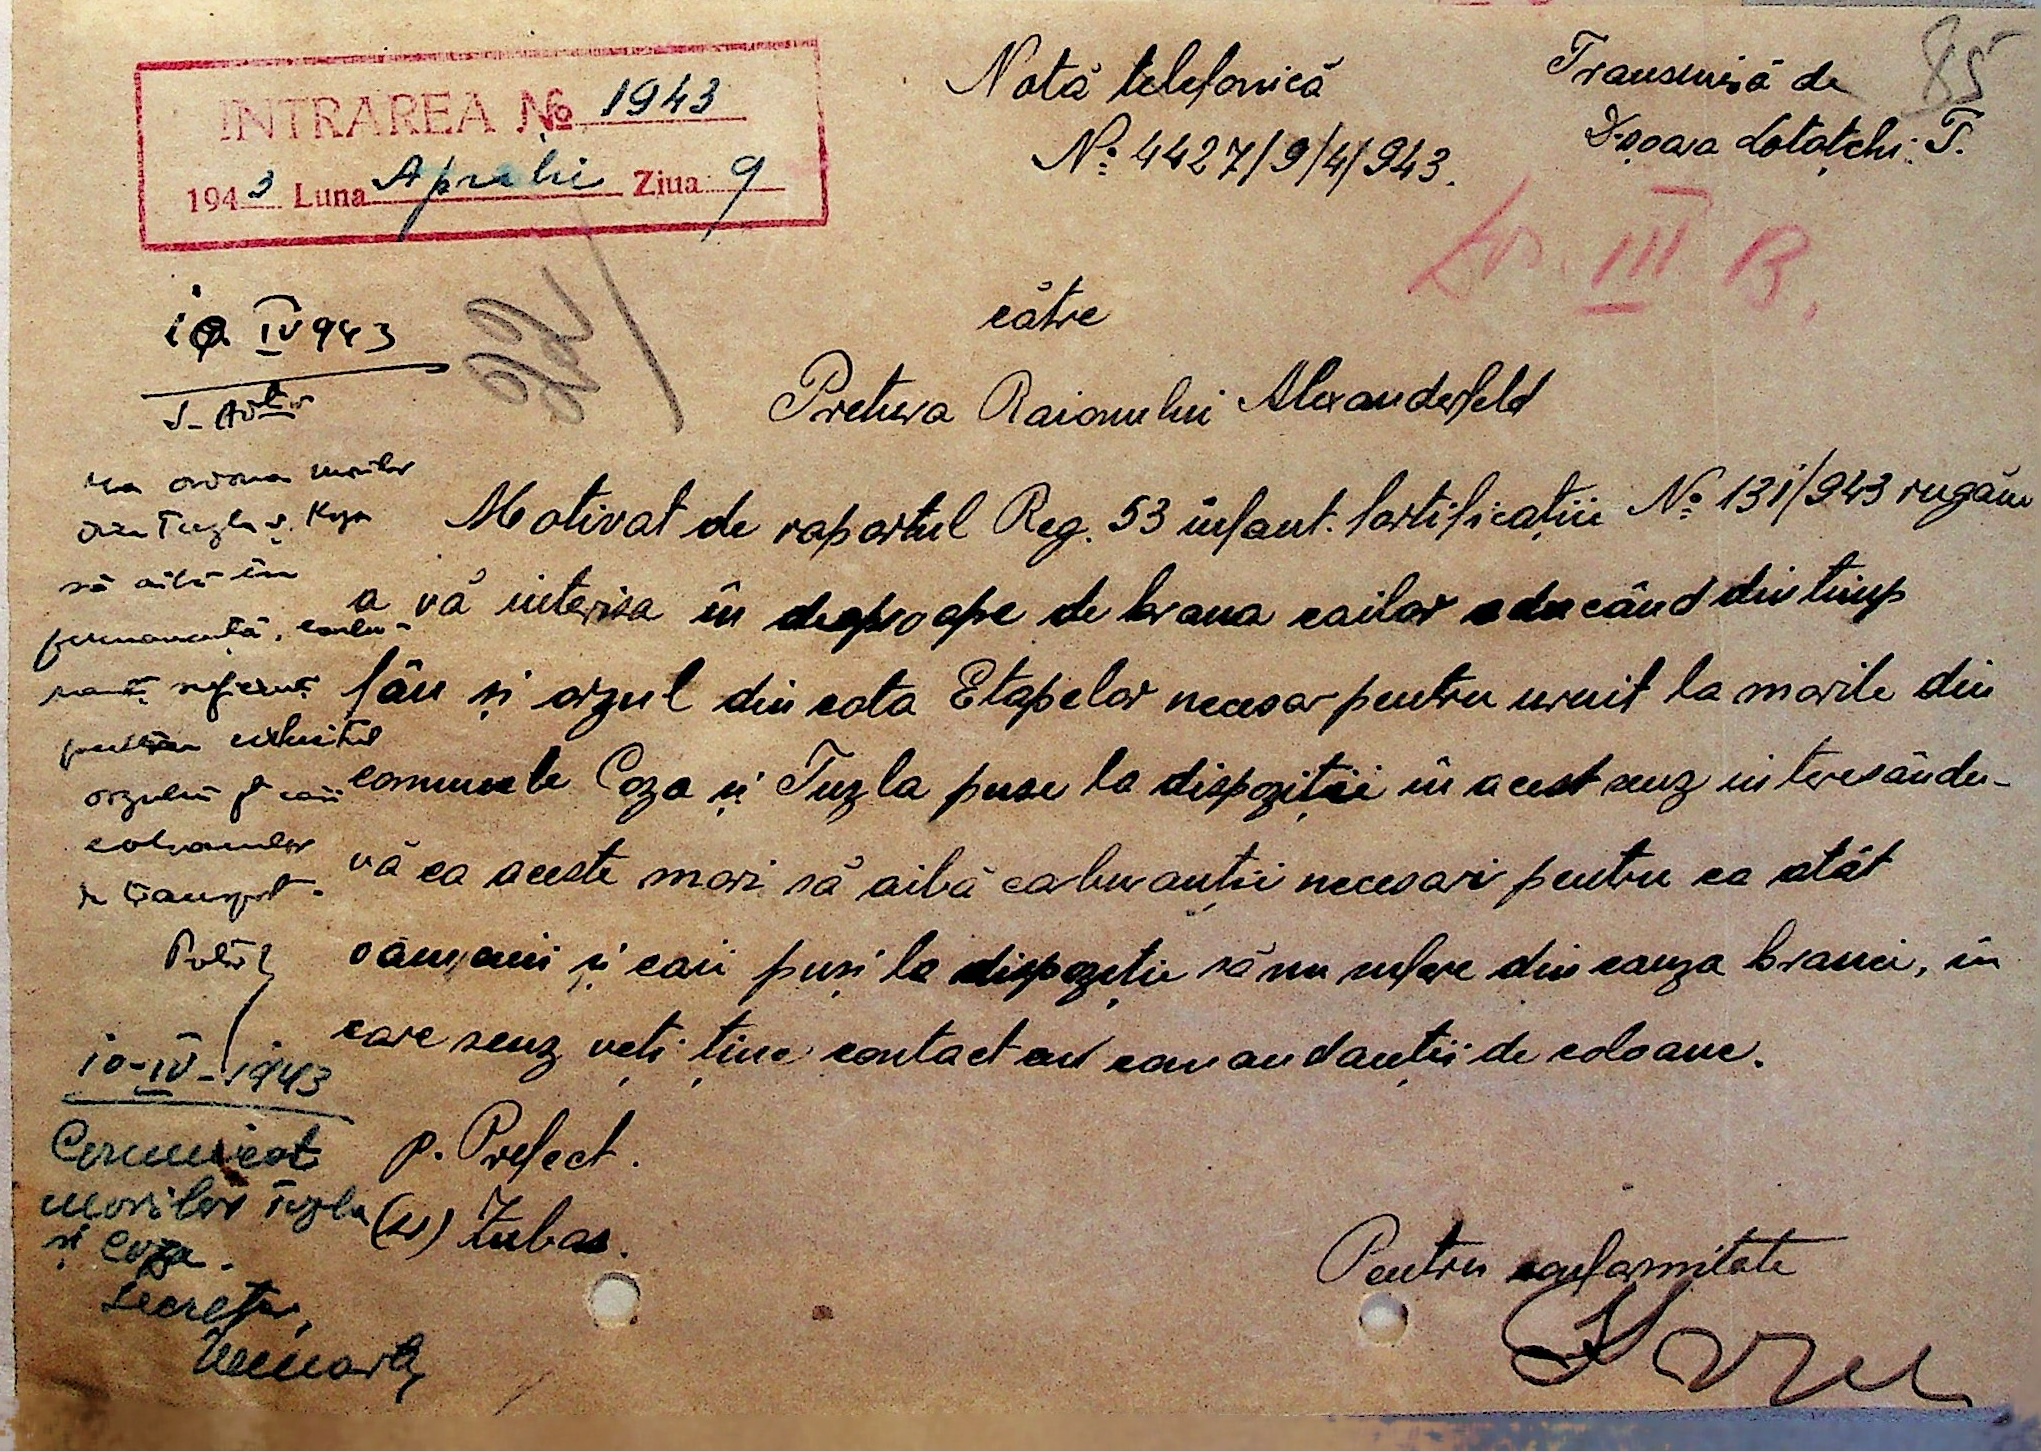 INTRAREA № 1943
1943 Luna Aprilie Ziua 9
Notă telefonică
Nº 4427/9/4/943.
Transmisă de
D-șoara Lotoțchi T.
85
III B.
22
10 IV 943
către
Pretura Raionului Alexanderfeld
Motivat de raportul Reg. 53 infant. fortificații Nº 131/943 rugăm
a vă interisa în deaproape de hrana cailor aducând din timp
fân și orzul din cota Etapelor necesar pentru uruit la morile din
comunele Coza și Tuzla puse la dispoziții în acest senz interesându-
vă ca aceste mori să aibă carburanții necesari pentru ca atât
oamenii și caii puși la dispoziție să nu sufere din cauza hranei, în
care senz veți ține contact cu comandanții de coloane.
p. Prefect.
(ss) Zubas.
Pentru conformitate
morilor
din Tuzla și Koza
să aibă în
permanență, carbu-
ranți suficienți
pentru uruitul
orzului pt caii
coloanelor
de transport.
10-IV-1943
Comunicat
morilor Tuzla
și Coza.
Secretar,